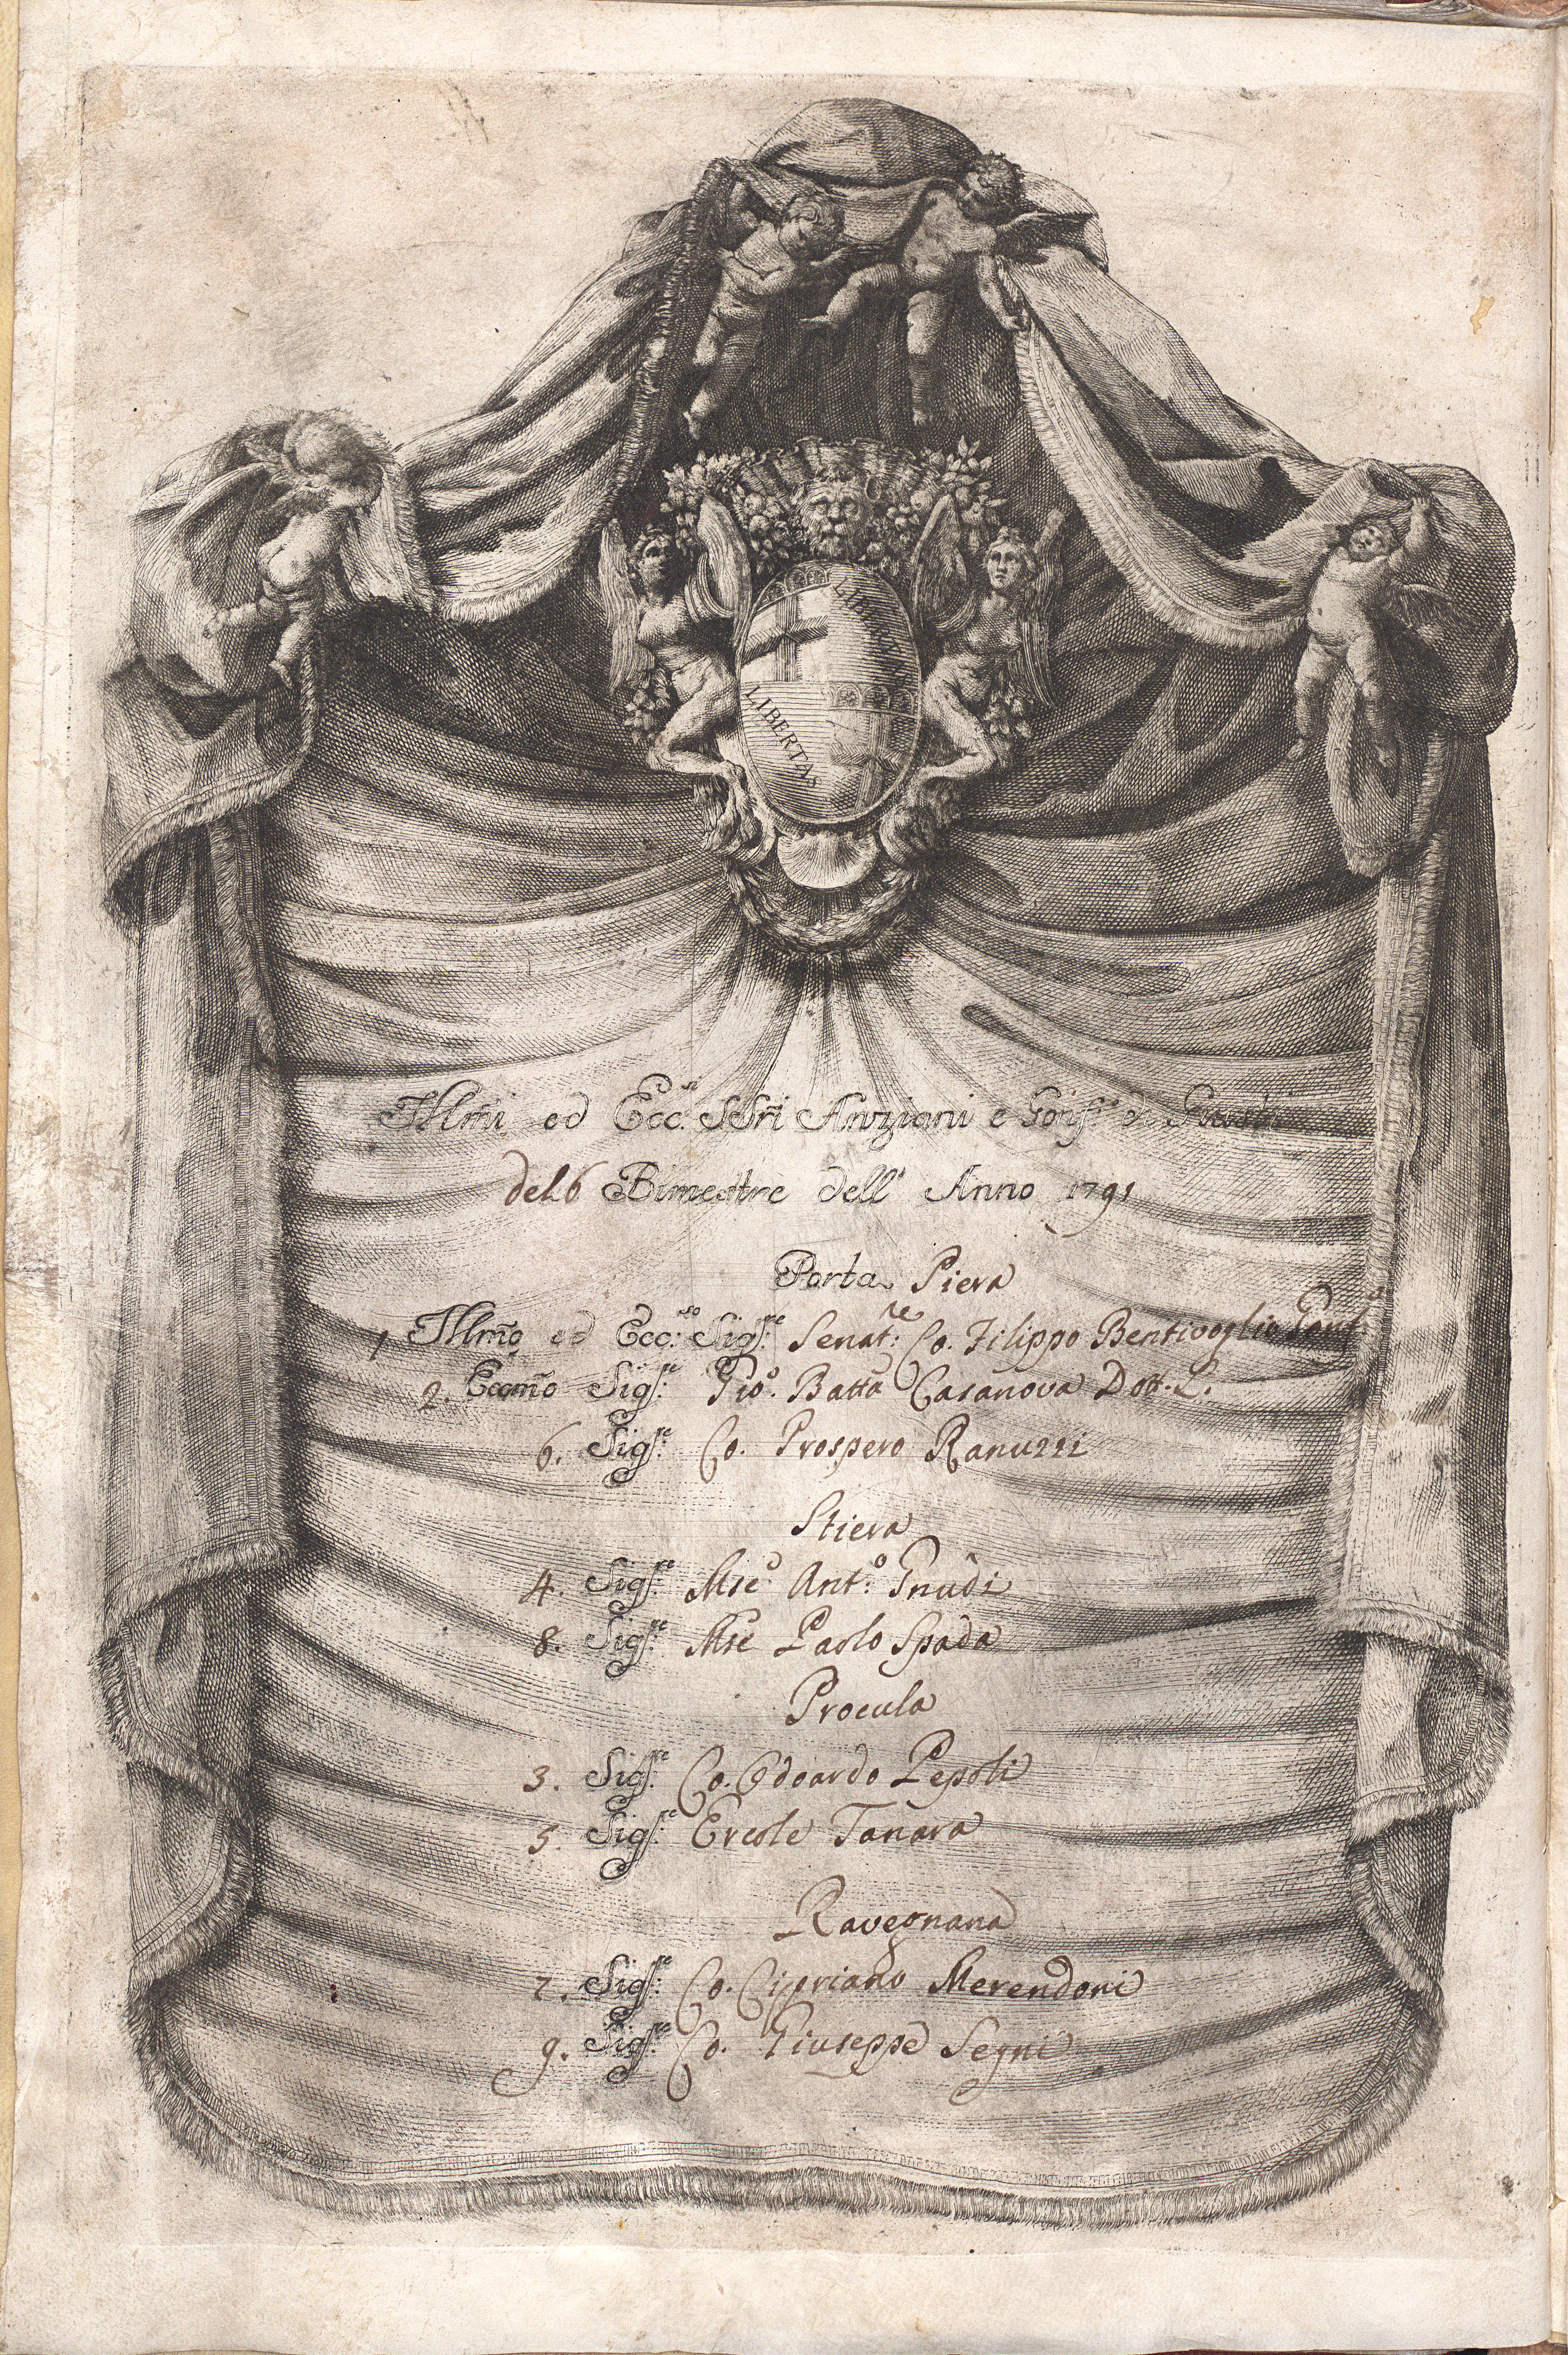 LIBERTAS
LIBERTAS
Illm̃i ed Ecc.si SSri Anziani e Gonf.re di Giustizia
del 6 Bimestre dell' Anno 1791
Porta Piera
1 Illm̃o ed Ecc.so Sig.re Senat.re Co. Filippo Bentivoglio Gonf.
2. Eccm̃o Sig.re Gio. Batta Casanova Dott. L.
6. Sig.re Co. Prospero Ranuzzi
Stiera
4. Sig.re Mse Ant.o Gnudi
8. Sig.re Mse Paolo Spada
Procula
3. Sig.re Co. Odoardo Pepoli
5. Sig.re Ercole Tanara
Ravegnana
7. Sig.re Co. Cipriano Merendoni
9. Sig.re Co. Giuseppe Segni